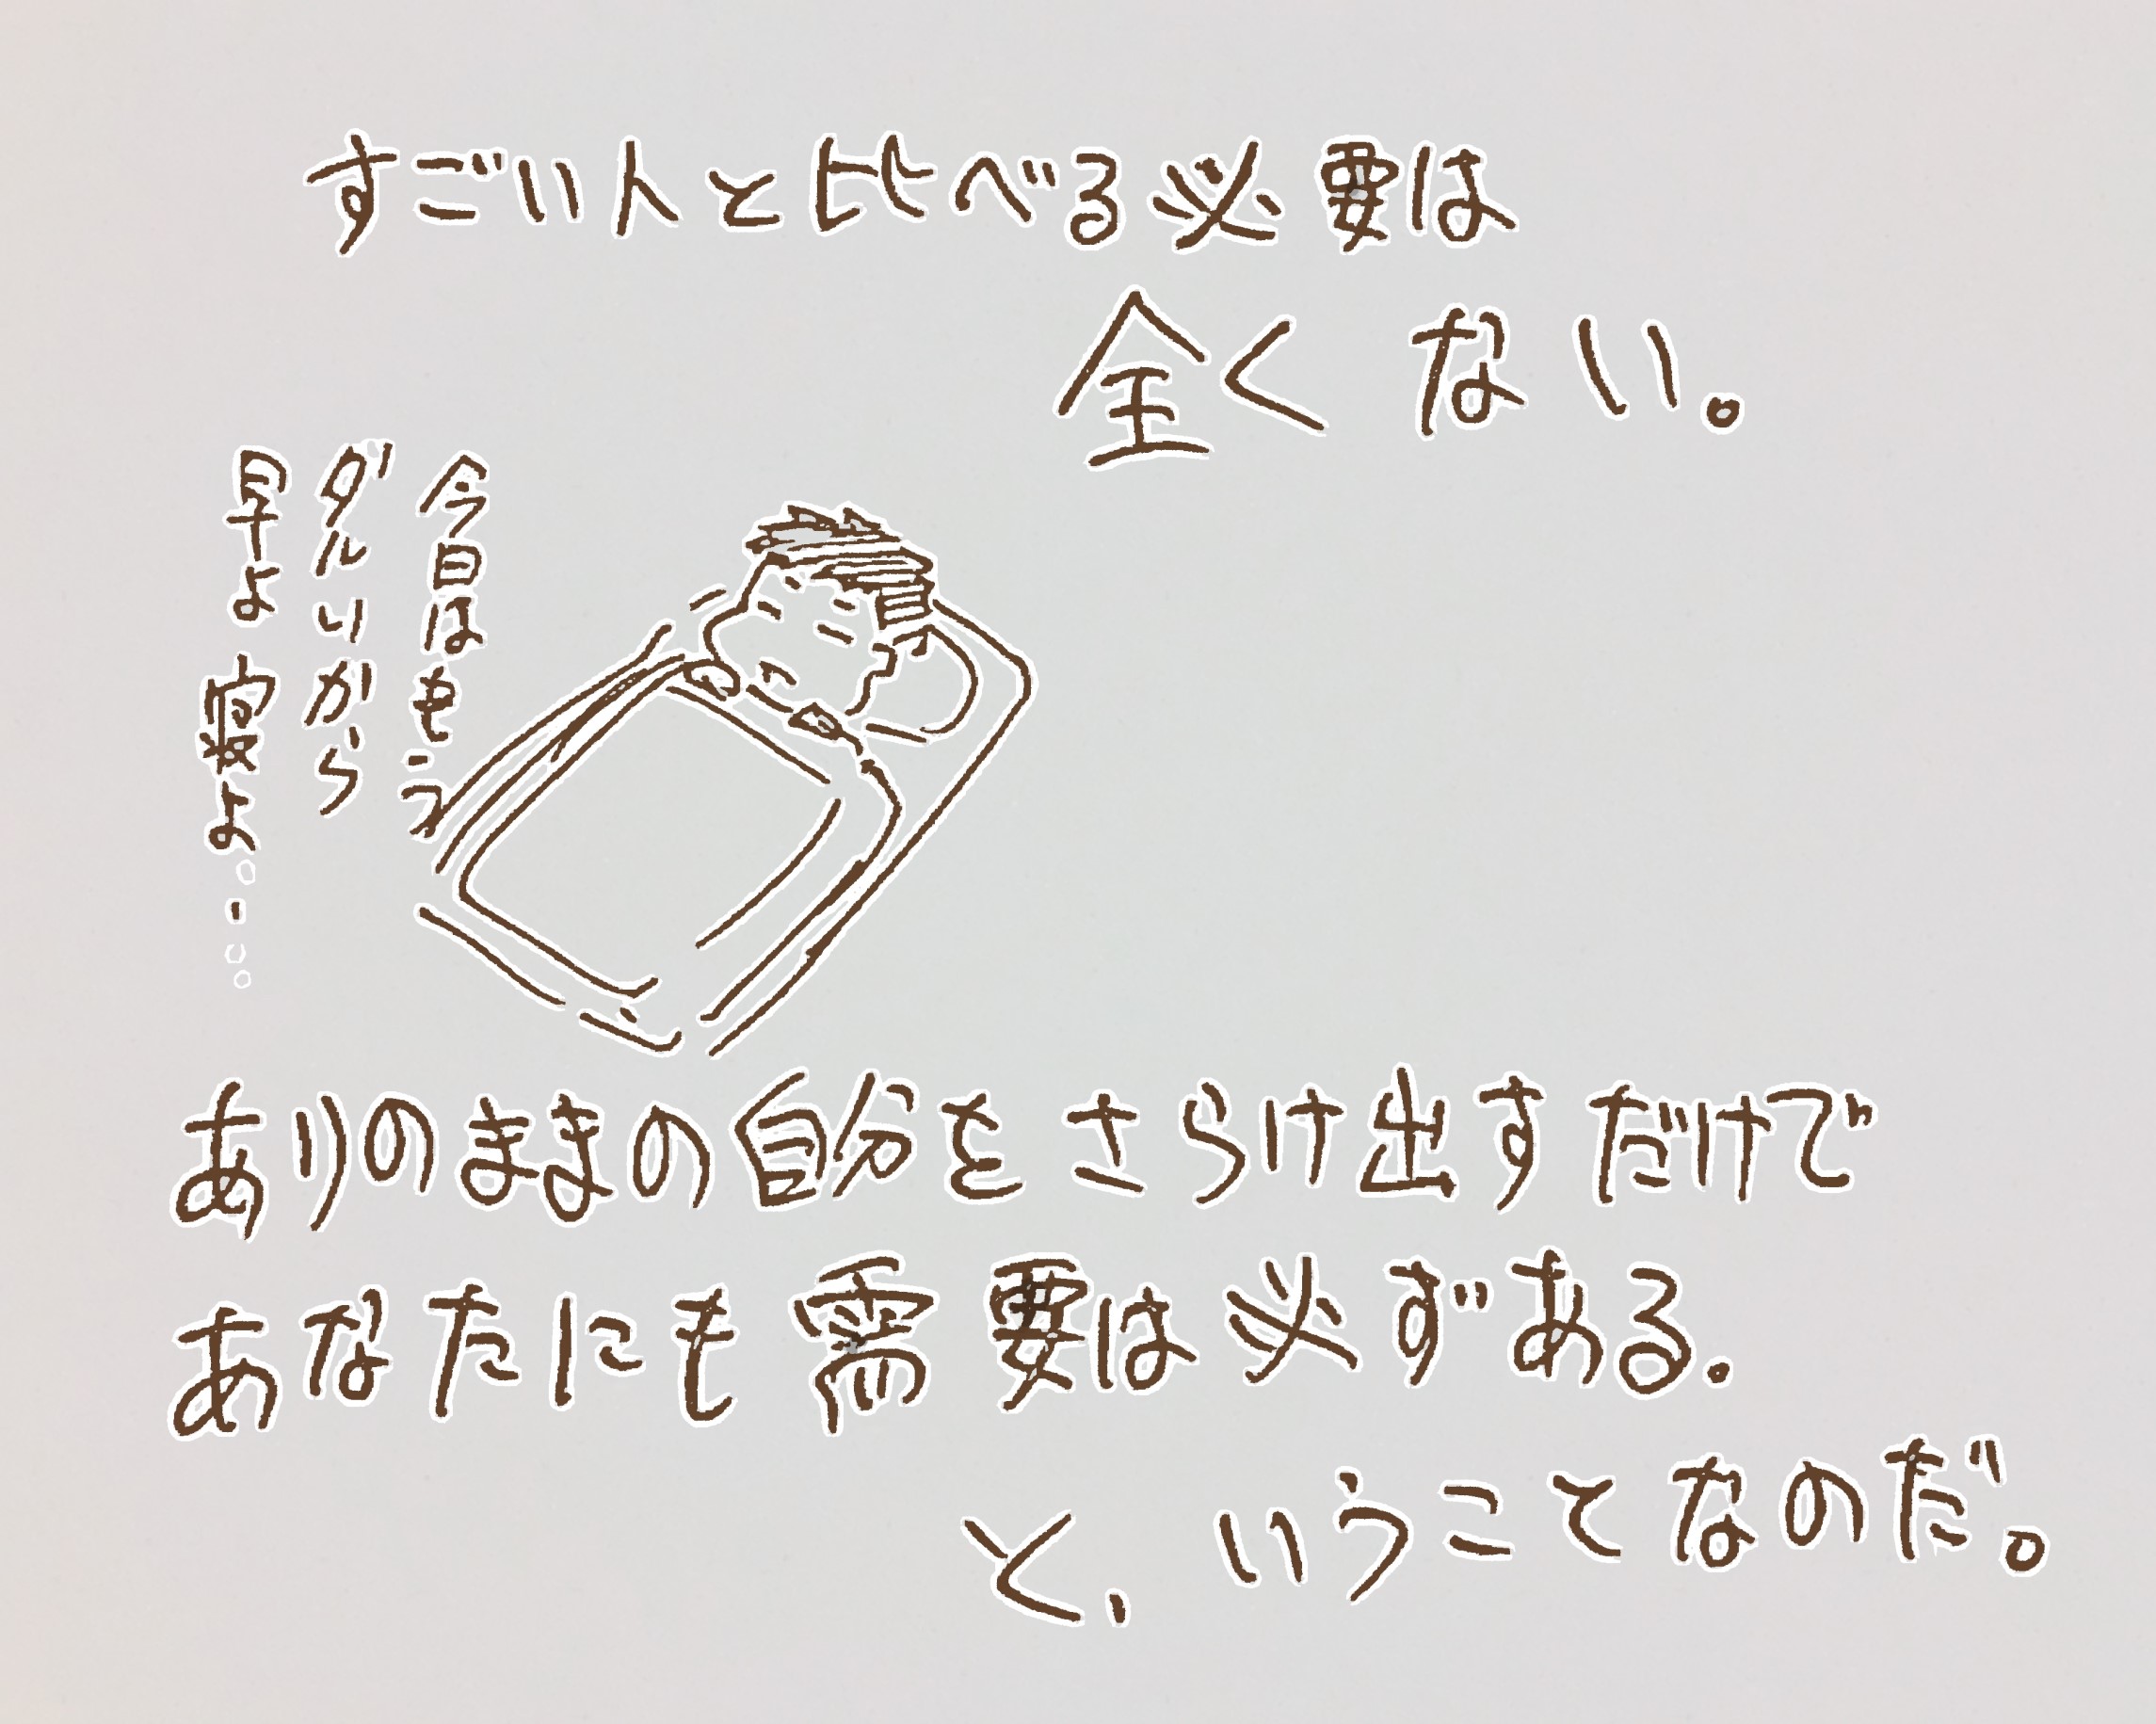 すごい人と比べる必要は
全くない。
今日はもう
ダルいから
早よ寝よ…
ありのままの自分をさらけ出すだけで
あなたにも需要は必ずある.
と、いうことなのだ。